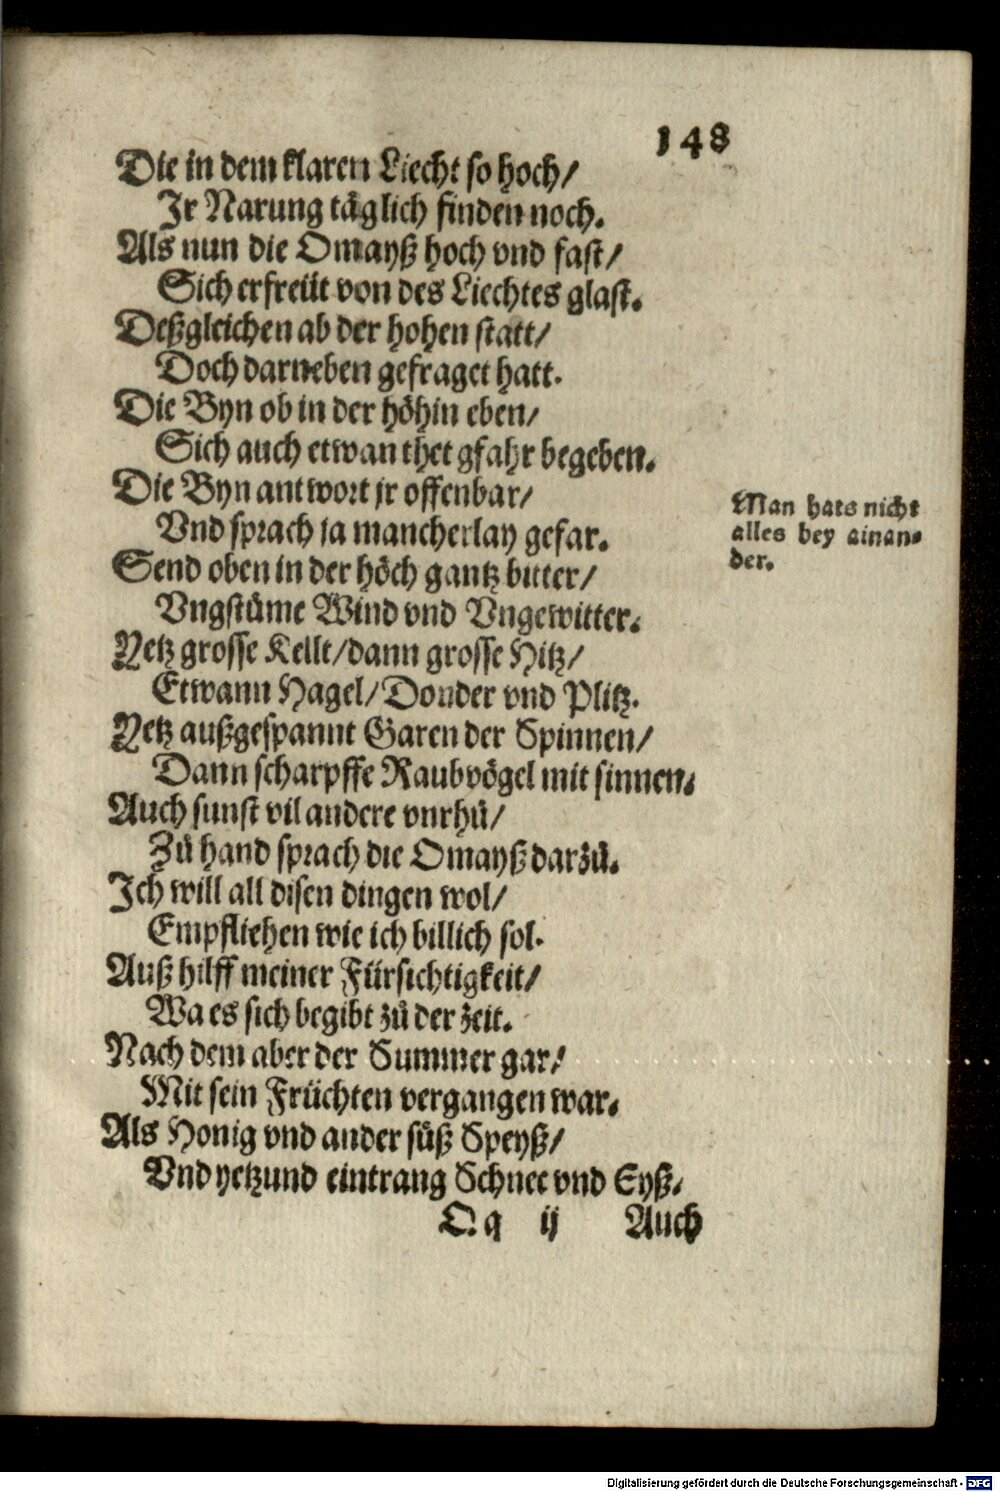 148
Die in dem klaren Liecht so hoch/
Ir Narung täglich finden noch.
Als nun die Omayß hoch vnd fast/
Sich erfreüt von des Liechtes glast.
Deßgleichen ab der hohen statt/
Doch darneben gefraget hatt.
Die Byn ob in der höhin eben/
Sich auch etwan thet gfahr begeben.
Die Byn antwort jr offenbar/
Vnd sprach ja mancherlay gefar.
Send oben in der höch gantz bitter/
Vngstüme Wind vnd Vngewitter.
Yetz grosse Kellt/dann grosse Hitz/
Etwann Hagel/Donder vnd Plitz.
Yetz außgespannt Garen der Spinnen/
Dann scharpffe Raubvögel mit sinnen.
Auch sunst vil andere vnrhů/
Zů hand sprach die Omayß darzů.
Ich will all disen dingen wol/
Empfliehen wie ich billich sol.
Auß hilff meiner Fürsichtigkeit/
Wa es sich begibt zů der zeit.
Nach dem aber der Summer gar/
Mit sein Früchten vergangen war.
Als Honig vnd ander süß Speyß/
Vnd yetzund eintrang Schnee vnd Eyß.
Q q ij Auch
Man hats nicht
alles bey ainan-
der.
Digitalisierung gefördert durch die Deutsche Forschungsgemeinschaft - DFG